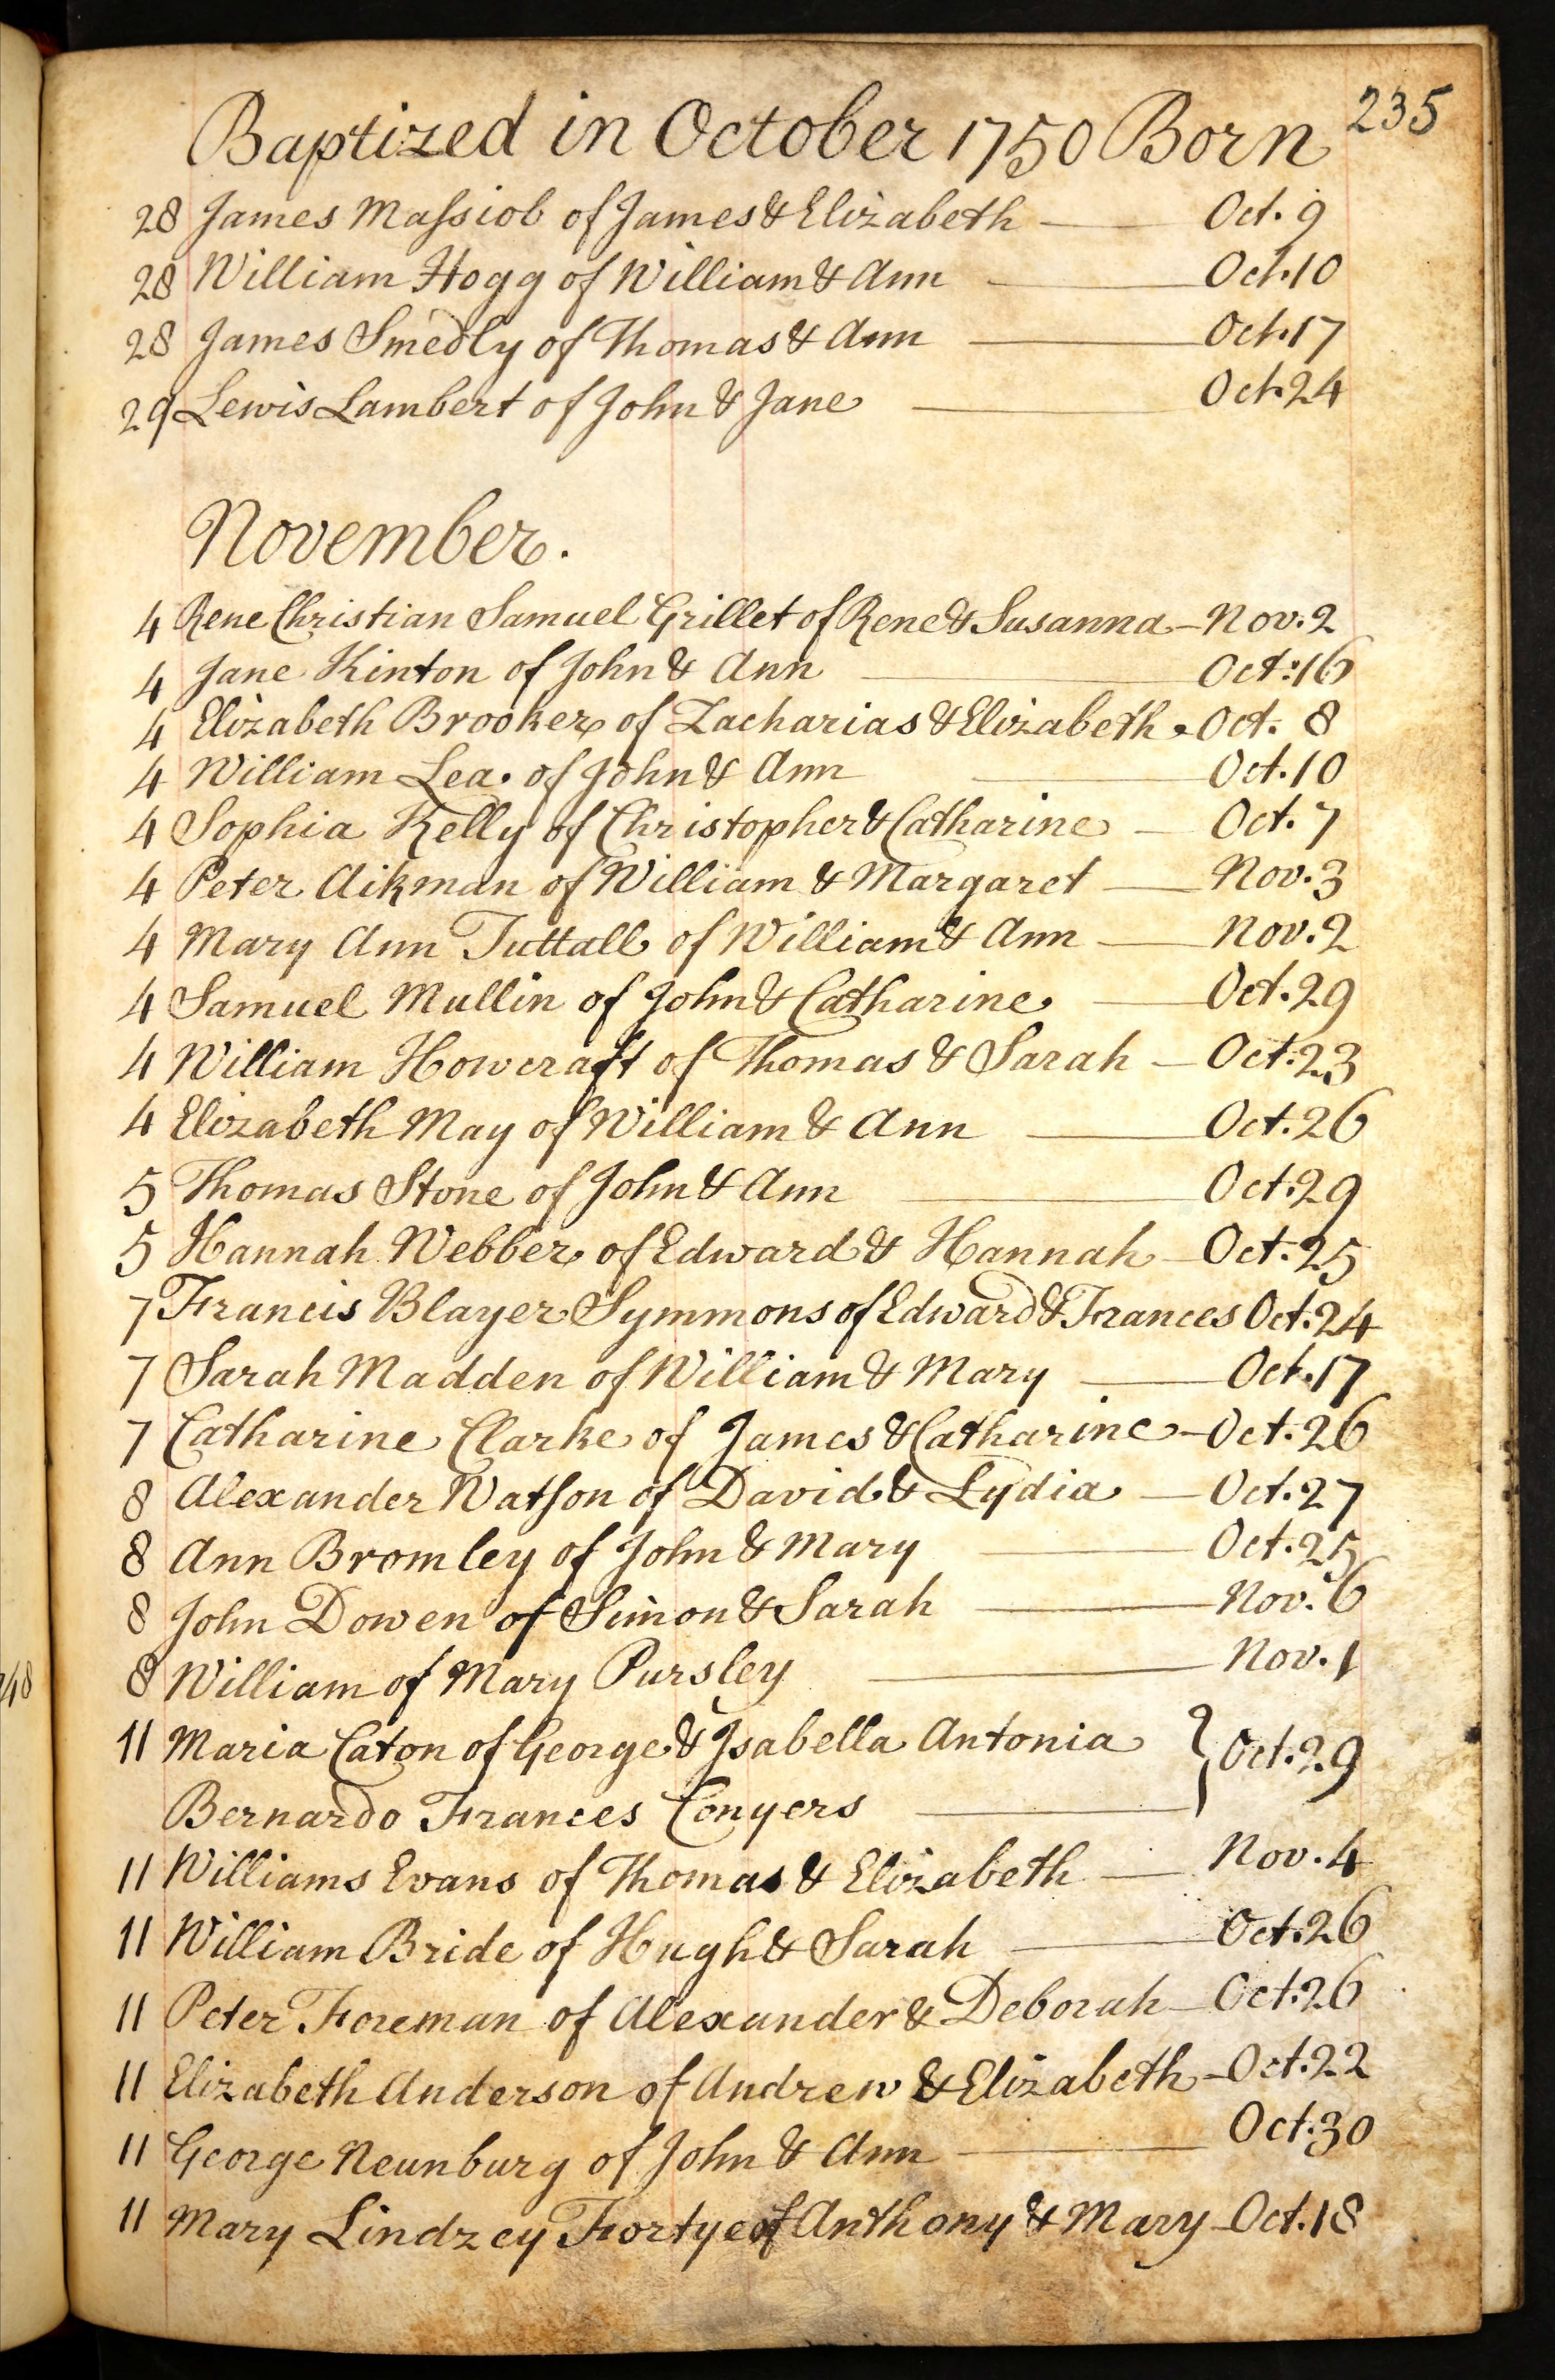 235
Baptized in October 1750 Born
28 James Maſsiob of James & Elizabeth — Oct. 9
28 William Hogg of William & Ann — Oct. 10
28 James Smedly of Thomas & Ann — Oct. 17
29 Lewis Lambert of John & Jane — Oct. 24
November.
4 Rene Christian Samuel Grillet of Rene & Susanna — Nov. 2
4 Jane Kinton of John & Ann — Oct: 16
4 Elizabeth Brooker of Zacharias & Elizabeth - Oct. 8
4 William Lea. of John & Ann — Oct. 10
4 Sophia Kelly of Christopher & Catharine — Oct. 7
4 Peter Aikman of William & Margaret — Nov. 3
4 Mary Ann Tuttall of William & Ann — Nov. 2
4 Samuel Mullin of John & Catharine — Oct. 29
4 William Howcraft of Thomas & Sarah — Oct. 23
4 Elizabeth May of William & Ann — Oct. 26
5 Thomas Stone of John & Ann — Oct. 29
5 Hannah Webber of Edward & Hannah — Oct. 25
7 Francis Blayer Symmons of Edward & Frances Oct. 24
7 Sarah Madden of William & Mary — Oct. 17
7 Catharine Clarke of James & Catharine — Oct. 26
8 Alexander Watſon of David & Lydia — Oct. 27
8 Ann Bromley of John & Mary — Oct. 25
8 John Dowen of Simon & Sarah — Nov. 6
8 William of Mary Pursley — Nov. 1
11 Maria Caton of George & Isabella Antonia } Oct. 29
Bernardo Frances Conyers —
11 Williams Evans of Thomas & Elizabeth — Nov. 4
11 William Bride of Hugh & Sarah — Oct. 26
11 Peter Foreman of Alexander & Deborah — Oct. 26
11 Elizabeth Anderson of Andrew & Elizabeth — Oct. 22
11 George Neunburg of John & Ann — Oct. 30
11 Mary Lindzey Fortye of Anthony & Mary — Oct. 18